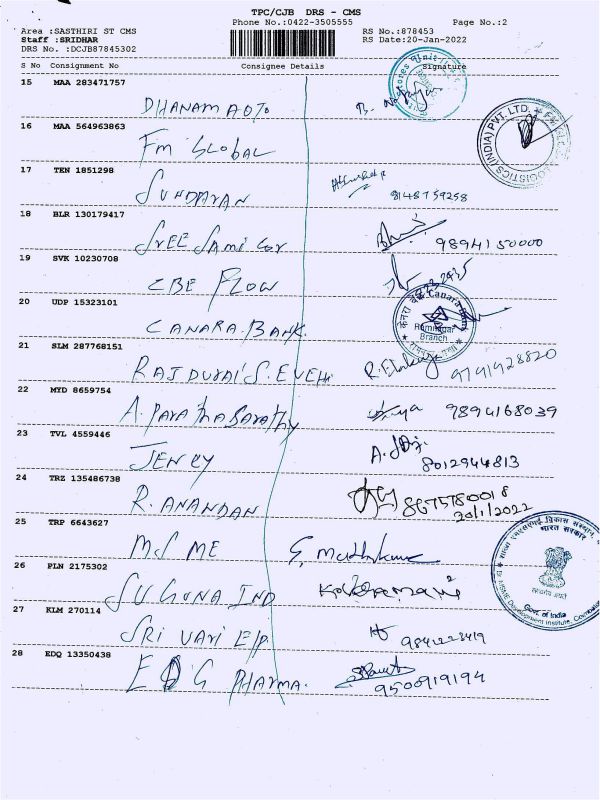 TPC/CJB DRS - CMS
Phone No.:0422-3505555 Page No.:2
Area :SASTHIRI ST CMS RS No.:878453
Staff :SRIDHAR RS Date:20-Jan-2022
DRS No. :DCJB87845302
S No Consignment No Consignee Details Signature
15 MAA 283471757
DHANAM AOTO
16 MAA 564963863
Fm GLOBAL
LOGISTICS (INDIA) PVT. LTD.
17 TEN 1851298
SUNDARAN 8148759258
18 BLR 130179417
SREE SAMI 9894150000
19 SVK 10230708
CBE FLOW
20 UDP 15323101
CANARA BANK
केनरा बैंक Canara Bank
Ramnagar
Branch
21 SLM 287768151
RAJ DURAI S. 9791928820
22 MYD 8659754
A. Parathasarathy 9894168039
23 TVL 4559446
JENCY 8012944813
24 TRZ 135486738
R. ANANDAN 8675780018
20/1/2022
25 TRP 6643627
MSME
भारत सरकार
Govt. of India
MSME Development Institute, Coimbatore
26 PLN 2175302
SUGUNA IND
27 KLM 270114
SRI VARI E/P
28 EDQ 13350438
PHARMA. 9500919194